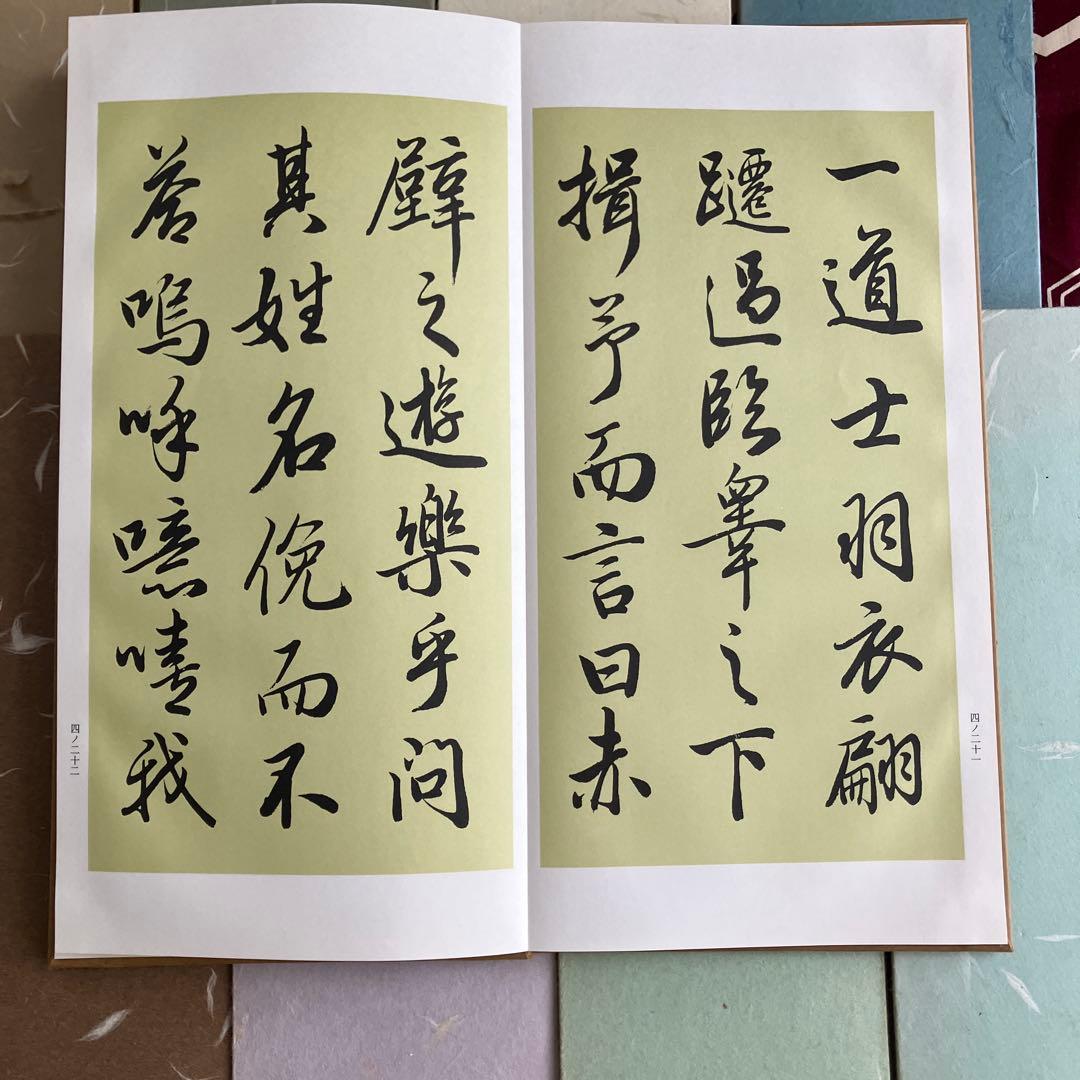 一道士羽衣翩
躚過臨皐之下
揖予而言曰赤
四ノ二十一
壁之遊樂乎問
其姓名俛而不
答嗚呼噫嘻我
四ノ二十二